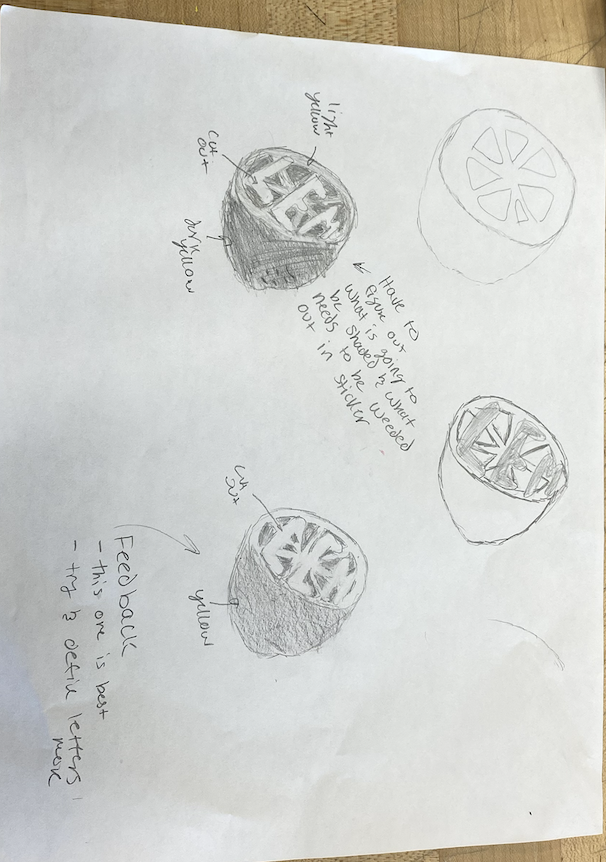 light
yellow
cut
out
LEM
dark
yellow
Have to
figure out
what is going to
be shaded & what
needs to be weeded
out in sticker
cut
out
yellow
Feedback
- this one is best
- try & define letters
more